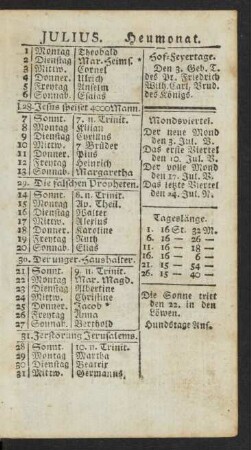 JULIUS. Heumonat.
1 Montag Theobald
2 Dienstag Mar. Heims. *
3 Mittw. Cornel
4 Donner. Ulrich
5 Freytag Anselm
6 Sonnab. Esaias
28. Jesus speiset 4000 Mann.
7 Sonnt. 7. n. Trinit.
8 Montag Kilian
9 Dienstag Cyrillus
10 Mittw. 7 Brüder
11 Donner. Pius
12 Freytag Heinrich
13 Sonnab. Margaretha
29. Die falschen Propheten.
14 Sonnt. 8. n. Trinit.
15 Montag Ap. Theil.
16 Dienstag Walter
17 Mittw. Alexius
18 Donner. Karoline
19 Freytag Ruth
20 Sonnab. Elias
30. Der unger. Haushalter.
21 Sonnt. 9. n. Trinit.
22 Montag Mar. Magd.
23 Dienstag Albertine
24 Mittw. Christine
25 Donner. Jacob *
26 Freytag Anna
27 Sonnab. Berthold
31. Zerstörung Jerusalems.
28 Sonnt. 10. n. Trinit.
29 Montag Martha
30 Dienstag Beatrix
31 Mittw. Germanus
Hof-Feyertage.
Den 3. Geb. T.
des Pr. Friedrich
Wilh. Carl, Brud.
des Königs.
Mondsviertel.
Der neue Mond
den 3. Jul. V.
Das erste Viertel
den 10. Jul. V.
Der volle Mond
den 17. Jul. V.
Das letzte Viertel
den 24. Jul. N.
Tageslänge.
1. 16 St. 32 M.
6. 16 — 26 —
11. 16 — 18 —
16. 16 — 6 —
21. 15 — 54 —
26. 15 — 40 —
Die Sonne tritt
den 22. in den
Löwen.
Hundstage Anf.